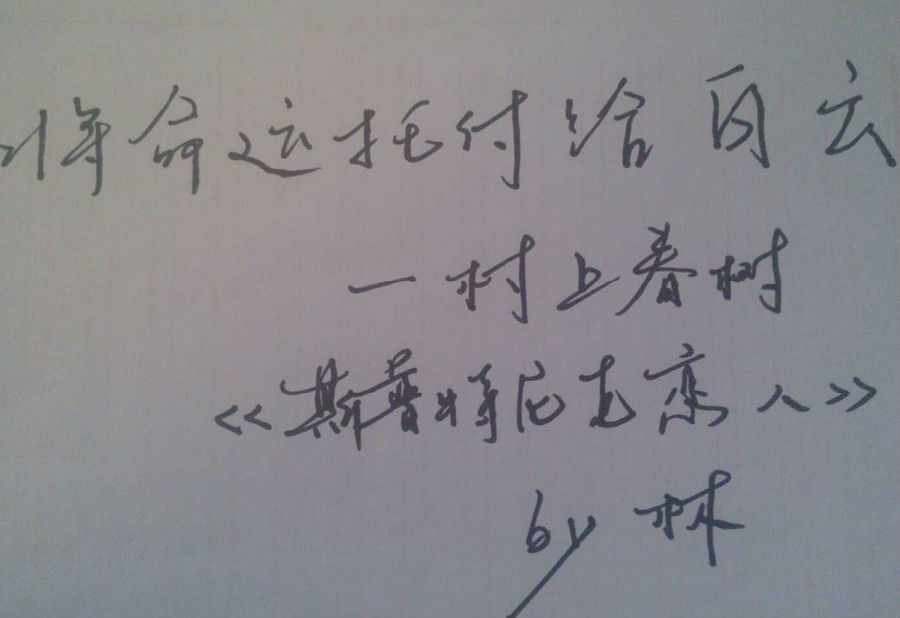 将命运托付给白云
一村上春树
<<斯普特尼克恋人>>
by 林